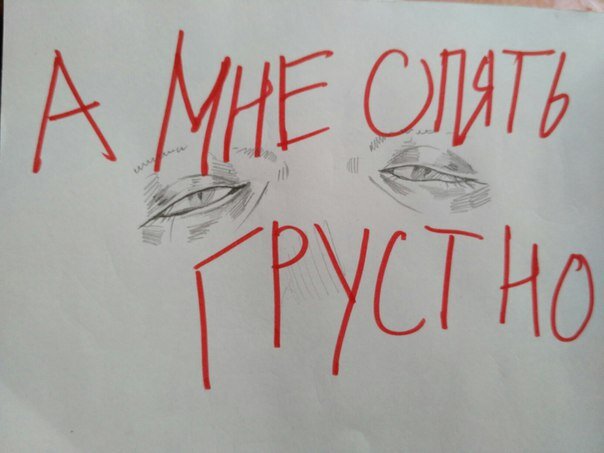 А МНЕ ОПЯТЬ
ГРУСТНО